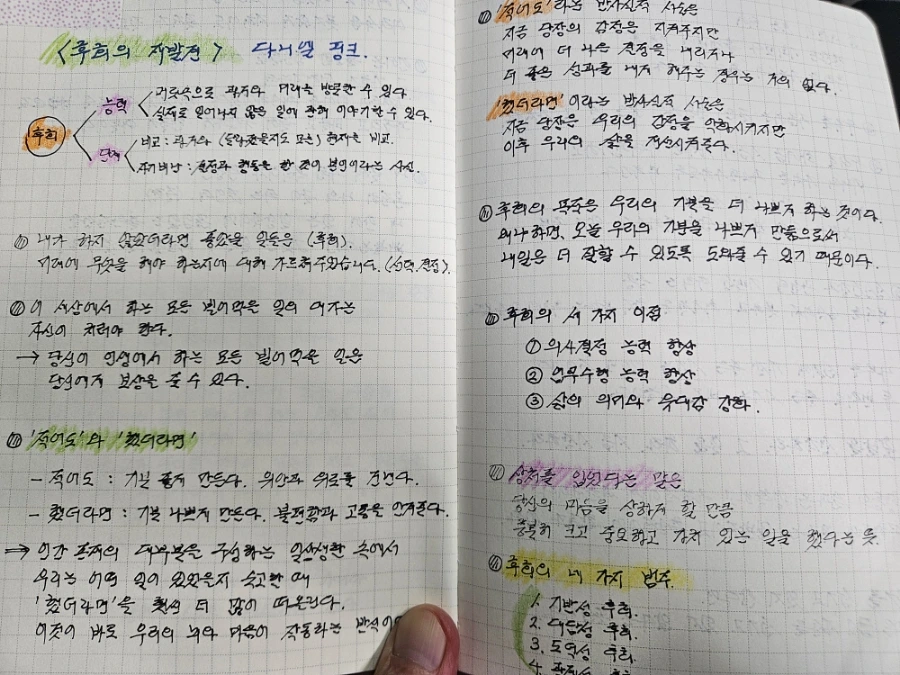 <후회의 재발견> 다니엘 핑크.
후회
능력
머릿속으로 과거와 미래를 방문할 수 있다
실제로 일어나지 않은 일에 관해 이야기할 수 있다.
단계
비교 : 과거와 (달라졌을지도 모를) 현재를 비교.
자기비난 : 결정과 행동을 한 것이 본인이라는 사실.
내가 하지 않았더라면 좋았을 일들은 (후회).
미래에 무엇을 해야 하는지에 대해 가르쳐주었습니다. (선택, 결정).
이 세상에서 하는 모든 빌어먹을 일의 대가는
자신이 치러야 한다.
→ 당신이 인생에서 하는 모든 빌어먹을 일은
당신에게 보상을 줄 수 있다.
'적어도'와 '했더라면'
- 적어도 : 기분 좋게 만든다. 위안과 위로를 건넨다.
- 했더라면 : 기분 나쁘게 만든다. 불편함과 고통을 안겨준다.
⇒ 인간 존재의 대부분을 구성하는 일상생활 속에서
우리는 어떤 일이 있었을지 숙고할 때
'했더라면'을 훨씬 더 많이 떠올린다.
이것이 바로 우리의 뇌와 마음이 작동하는 방식이
'적어도'라는 반사실적 사고는
지금 당장의 감정은 지켜주지만
미래에 더 나은 결정을 내리거나
더 좋은 성과를 내게 해주는 경우는 거의 없다.
'했더라면'이라는 반사실적 사고는
지금 당장은 우리의 감정을 악화시키지만
이후 우리의 삶을 개선시켜준다.
후회의 목적은 우리의 기분을 더 나쁘게 하는 것이다.
왜냐하면, 오늘 우리의 기분을 나쁘게 만듦으로써
내일은 더 잘할 수 있도록 도와줄 수 있기 때문이다.
후회의 세 가지 이점
① 의사결정 능력 향상
② 업무수행 능력 향상
③ 삶의 의미와 유대감 강화.
상처를 입었다는 말은
당신의 마음을 상하게 할 만큼
충분히 크고 중요하고 가치 있는 일을 했다는 뜻.
후회의 네 가지 범주.
1. 기반성 후회.
2. 대담성 후회.
3. 도덕성 후회.
4. 관계성 후회